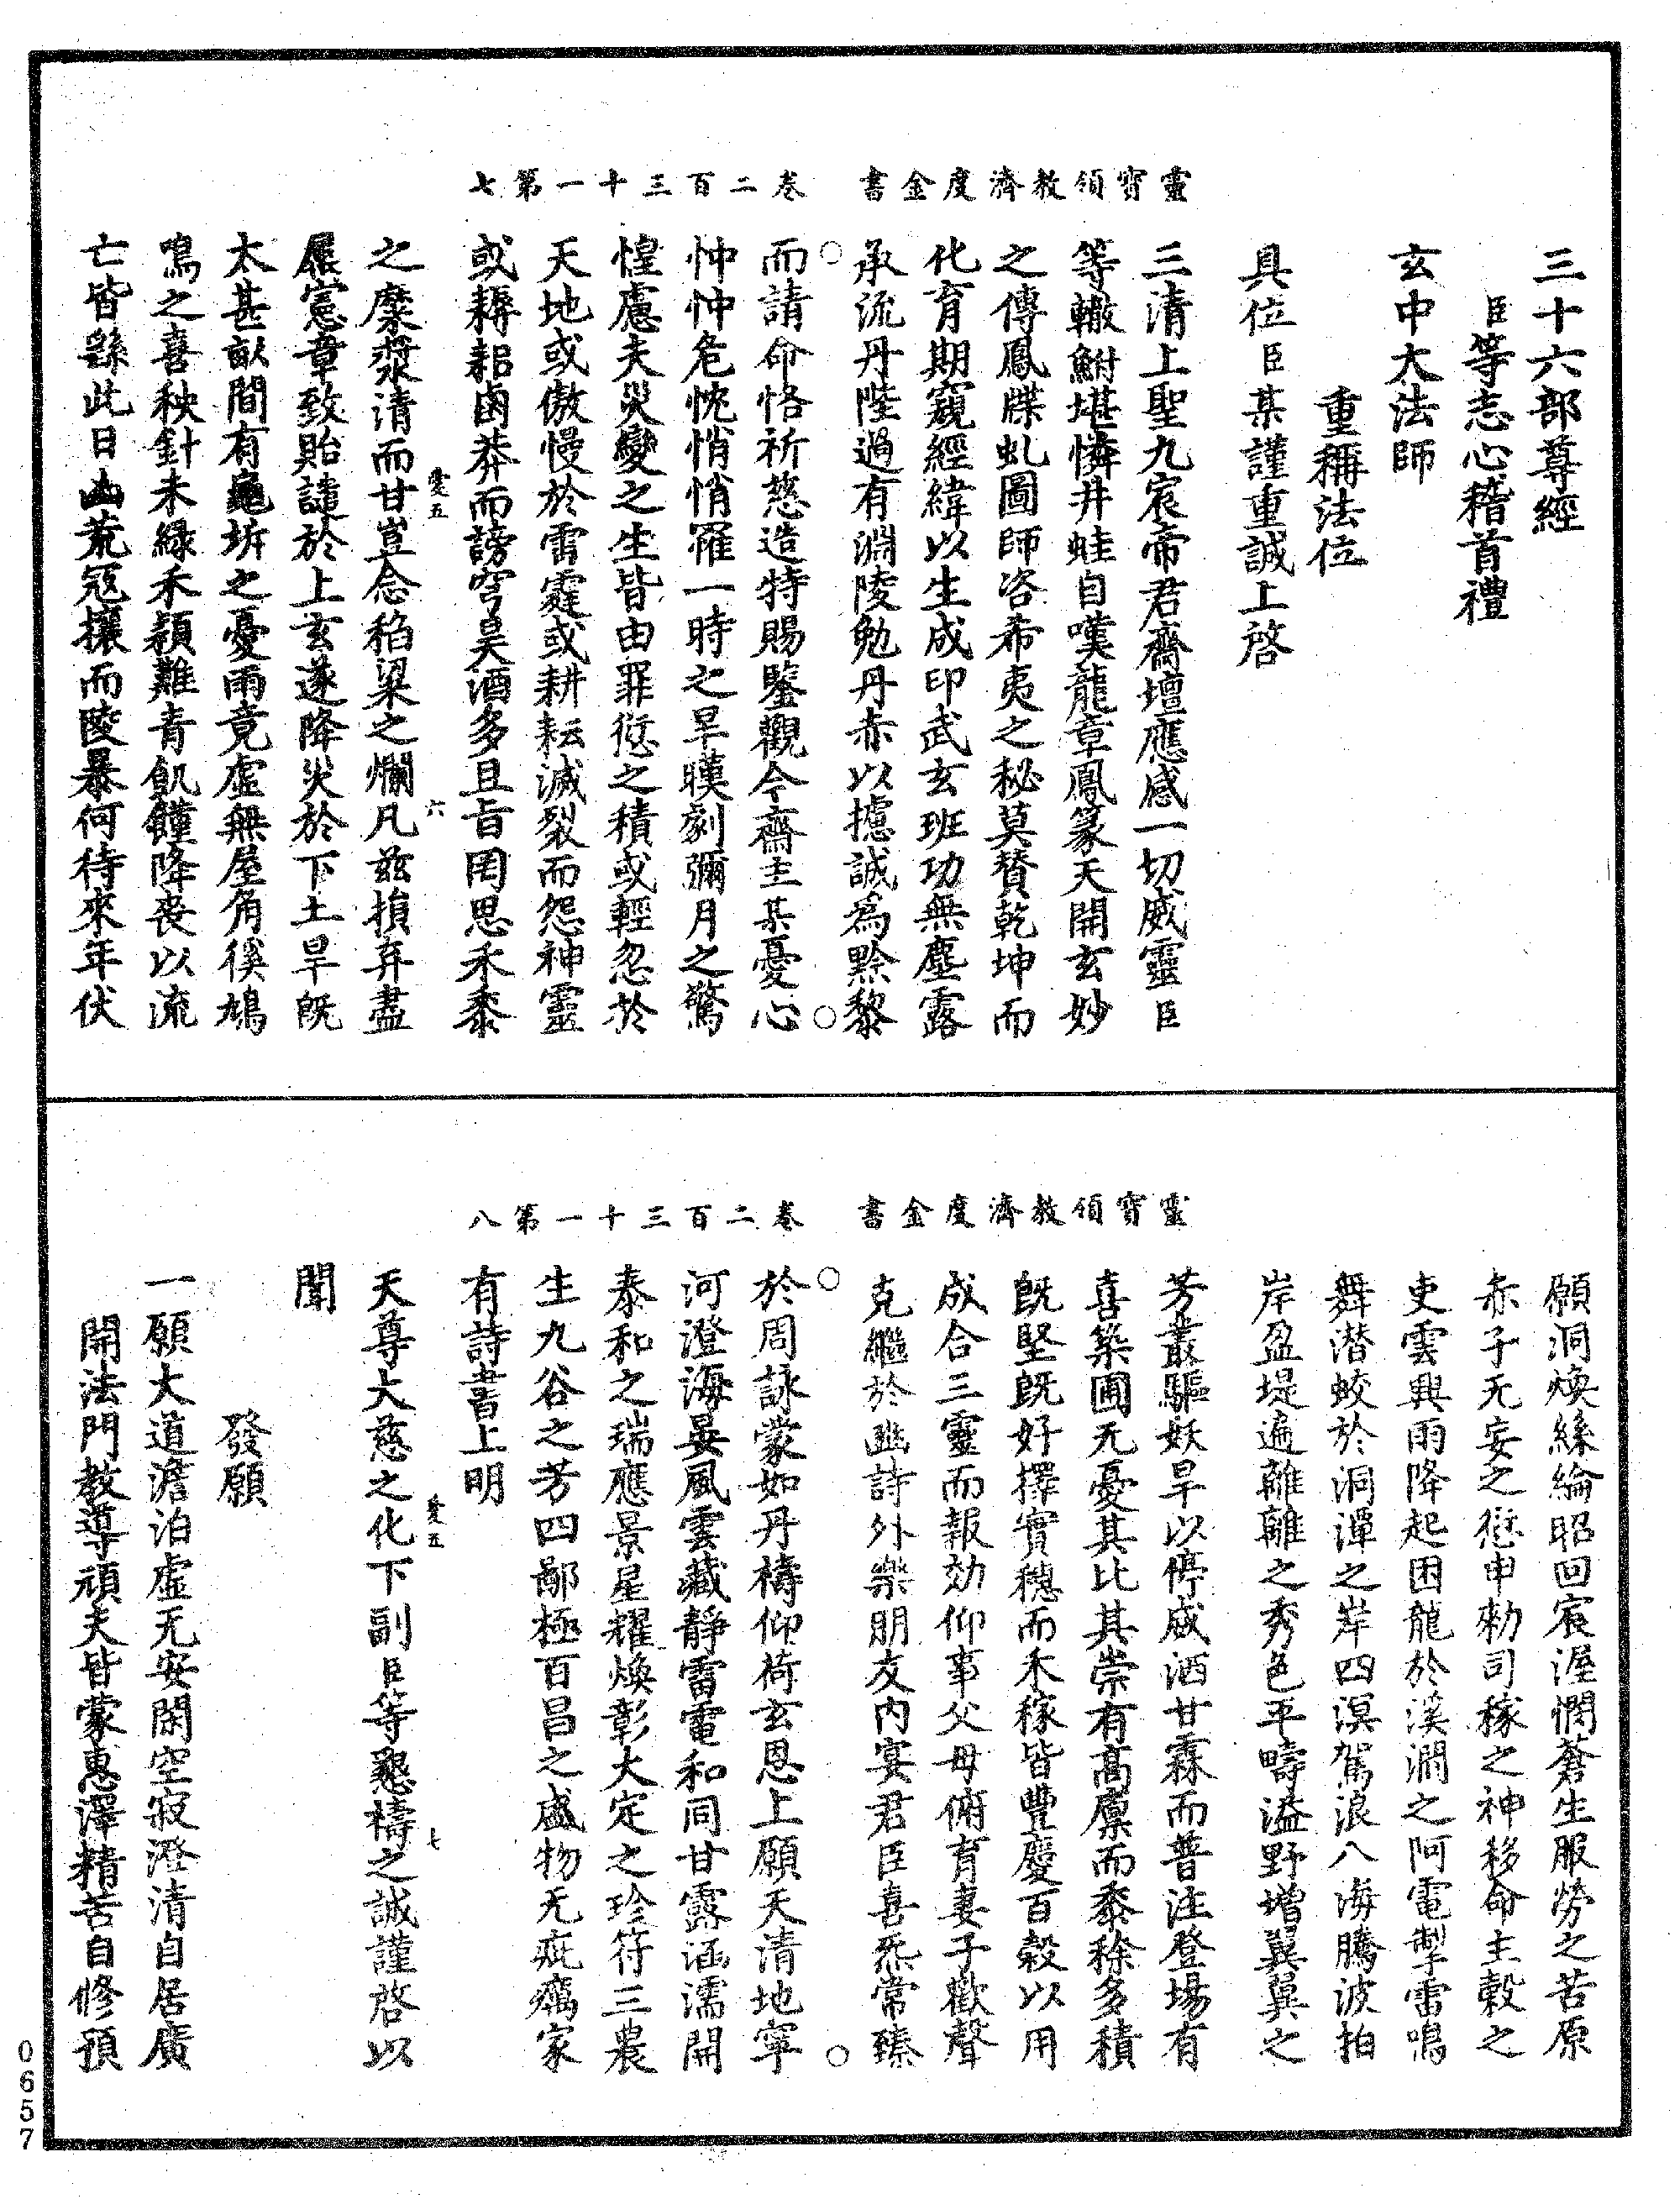 三十六部尊經
臣等志心稽首禮
玄中大法師
重稱法位
具位臣某謹重誠上啓
三清上聖九宸帝君齋壇應感一切威靈臣
等轍鮒堪憐井蛙自嘆龍章鳳篆天開玄妙
之傳鳳牒虬圖師咨希夷之秘莫贊乾坤而
化育期窺經緯以生成印武玄班功無塵露
承流丹陛過有淵陵勉丹赤以攄誠爲黔黎
靈寶領教濟度金書
卷二百三十一第七
而請命恪祈慈造特賜鑒觀今齋主某憂心
忡忡危忱悄悄罹一時之旱暵劇彌月之驚
惶慮夫災變之生皆由罪愆之積或輕忽於
天地或傲慢於雷霆或耕耘滅裂而怨神靈
或耨耜鹵莽而謗穹昊酒多且旨罔思禾黍
之糜漿清而甘豈念稻粱之爛凡兹損弃盡
愛五
六
屬憲章致貽譴於上玄遂降災於下土旱旣
太甚畝間有龜坼之憂雨竟虛無屋角徯鳩
鳴之喜秧針未綠禾穎難青飢饉降喪以流
亡皆繇此日凶荒寇攘而陵暴何待來年伏
願洞煥絲綸昭回宸渥憫蒼生服勞之苦原
赤子无妄之愆申勑司稼之神移命主穀之
吏雲興雨降起困龍於溪澗之阿電掣雷鳴
舞潛蛟於洞潭之岸四溟駕浪八海騰波拍
岸盈堤遍離離之秀色平疇溢野增翼翼之
芳叢驅妖旱以停威洒甘霖而普注登場有
喜築圃无憂其比其崇有高廩而黍稌多積
旣堅旣好擇實穗而禾稼皆豐慶百穀以用
成合三靈而報効仰事父母俯育妻子歡聲
克繼於豳詩外樂朋友內宴君臣喜炁常臻
靈寶領教濟度金書
卷二百三十一第八
於周詠蒙如丹禱仰荷玄恩上願天清地寧
河澄海晏風雲藏靜雷電和同甘露涵濡開
泰和之瑞應景星耀煥彰大定之珍符三農
生九谷之芳四鄙極百昌之盛物无疵癘家
有詩書上明
天尊大慈之化下副臣等懇禱之誠謹啓以
愛五
七
聞
發願
一願大道澹泊虛无安閑空寂澄清自居廣
開法門教導頑夫皆蒙惠澤精苦自修預
0657